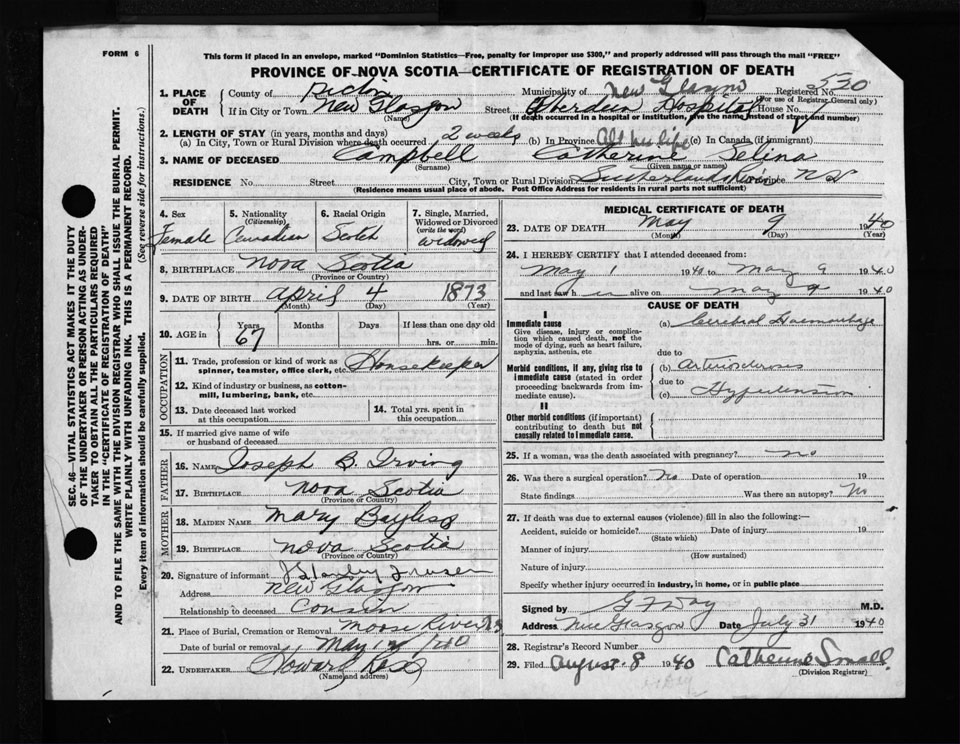 FORM 6
This form if placed in an envelope, marked "Dominion Statistics—Free, penalty for improper use $300," and properly addressed will pass through the mail "FREE"
PROVINCE OF NOVA SCOTIA—CERTIFICATE OF REGISTRATION OF DEATH
1. PLACE OF DEATH
County of Pictou Municipality of New Glasgow Registered No. 530
(For use of Registrar General only)
If in City or Town New Glasgow Street Aberdeen Hospital House No.
(Name) (If death occurred in a hospital or institution, give the name instead of street and number)
2. LENGTH OF STAY (in years, months and days)
(a) In City, Town or Rural Division where death occurred 2 weeks (b) In Province All her life (c) In Canada (if immigrant)
3. NAME OF DECEASED Campbell Catherine Selina
(Surname) (Given name or names)
RESIDENCE No. Street City, Town or Rural Division Sutherlands River Province N.S.
(Residence means usual place of abode. Post Office Address for residents in rural parts not sufficient)
4. Sex Female
5. Nationality (Citizenship) Canadian
6. Racial Origin Scotch
7. Single, Married, Widowed or Divorced (write the word) widowed
8. BIRTHPLACE Nova Scotia
(Province or Country)
9. DATE OF BIRTH April 4 1873
(Month) (Day) (Year)
10. AGE in Years 67 Months Days If less than one day old hrs. or min.
OCCUPATION
11. Trade, profession or kind of work as spinner, teamster, office clerk, etc. Housekeeper
12. Kind of industry or business, as cotton-mill, lumbering, bank, etc.
13. Date deceased last worked at this occupation
14. Total yrs. spent in this occupation
15. If married give name of wife or husband of deceased
FATHER
16. NAME Joseph B. Irving
17. BIRTHPLACE Nova Scotia
(Province or Country)
MOTHER
18. MAIDEN NAME Mary Bayliss
19. BIRTHPLACE Nova Scotia
(Province or Country)
20. Signature of informant J Stanley Fraser
Address New Glasgow
Relationship to deceased Cousin
21. Place of Burial, Cremation or Removal Moose River N.S.
Date of burial or removal May
22. UNDERTAKER Howard Ross
(Name and address)
MEDICAL CERTIFICATE OF DEATH
23. DATE OF DEATH May 9 1940
(Month) (Day) (Year)
24. I HEREBY CERTIFY that I attended deceased from:
May 1 1940 to May 9 1940
and last saw her alive on May 9 1940
CAUSE OF DEATH
I
Immediate cause
Give disease, injury or complication which caused death, not the mode of dying, such as heart failure, asphyxia, asthenia, etc
(a) Cerebral Haemorrhage
due to
Morbid conditions, if any, giving rise to immediate cause (stated in order proceeding backwards from immediate cause).
(b) Arteriosclerosis
due to
(c) Hypertension
II
Other morbid conditions (if important) contributing to death but not causally related to immediate cause.
25. If a woman, was the death associated with pregnancy? No
26. Was there a surgical operation? No Date of operation 19
State findings Was there an autopsy? No
27. If death was due to external causes (violence) fill in also the following:—
Accident, suicide or homicide? Date of injury 19
(State which)
Manner of injury
(How sustained)
Nature of injury
Specify whether injury occurred in industry, in home, or in public place
Signed by G F Day M.D.
Address New Glasgow Date July 31 1940
28. Registrar's Record Number
29. Filed August 8 1940 Catherine Small
(Division Registrar)
SEC. 46—VITAL STATISTICS ACT MAKES IT THE DUTY OF THE UNDERTAKER OR PERSON ACTING AS UNDERTAKER TO OBTAIN ALL THE PARTICULARS REQUIRED IN THE "CERTIFICATE OF REGISTRATION OF DEATH"
AND TO FILE THE SAME WITH THE DIVISION REGISTRAR WHO SHALL ISSUE THE BURIAL PERMIT.
WRITE PLAINLY WITH UNFADING INK. THIS IS A PERMANENT RECORD.
Every item of information should be carefully supplied. (See reverse side for instructions.)